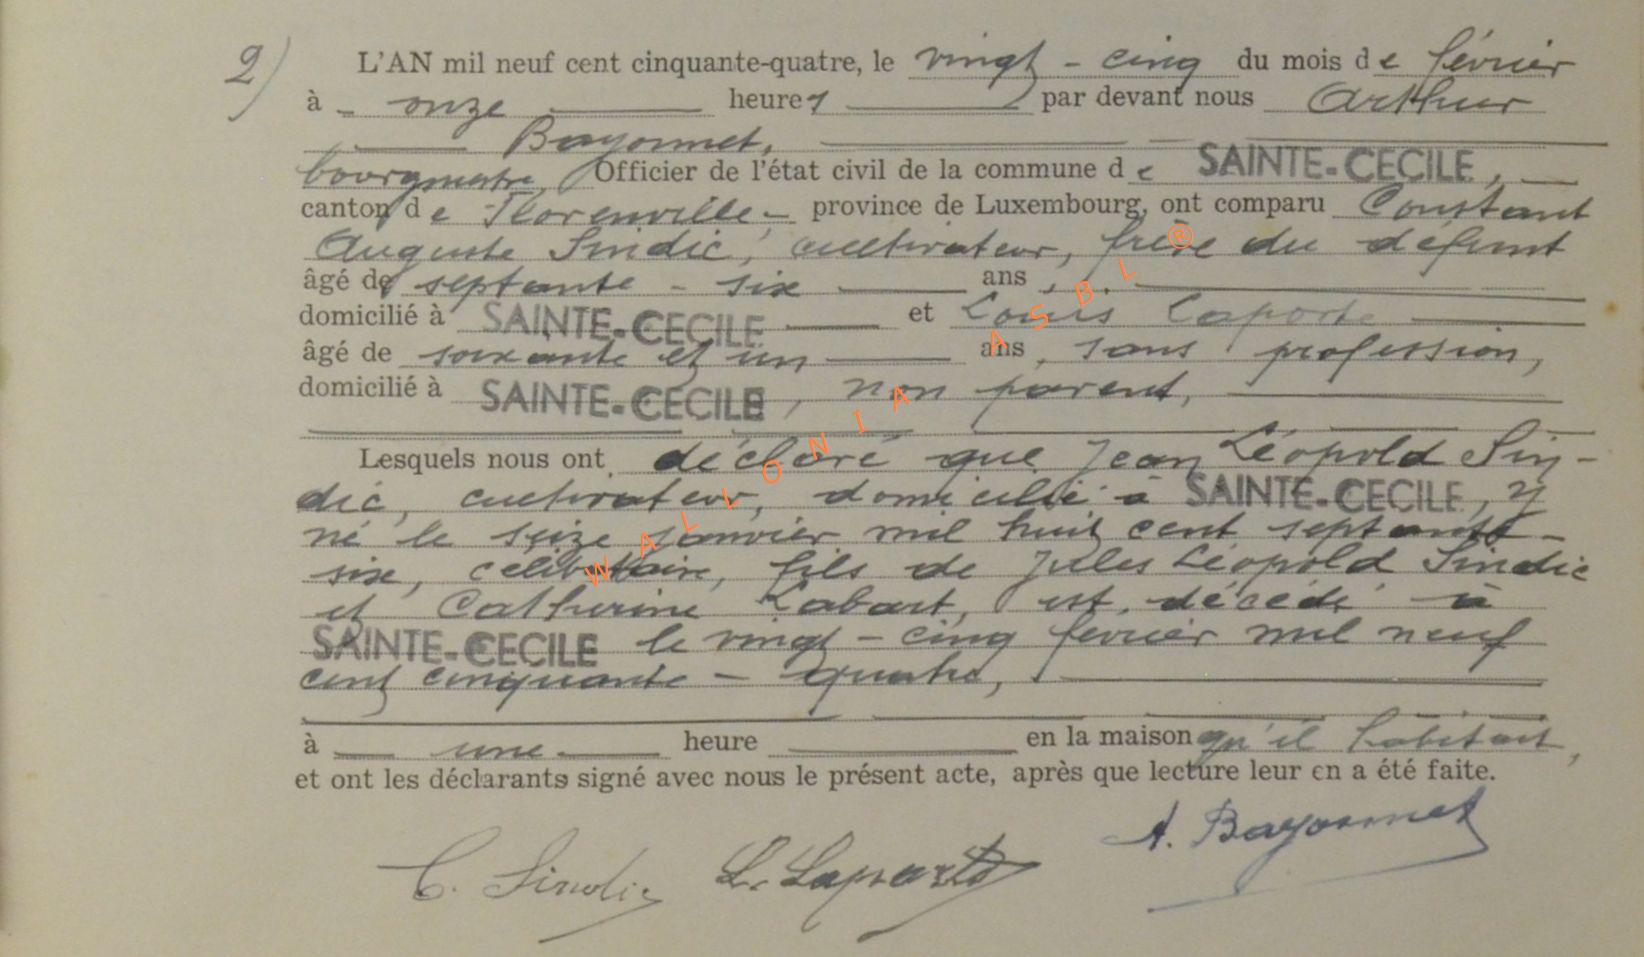 2) L'AN mil neuf cent cinquante-quatre, le vingt-cinq du mois de février
à onze heures par devant nous Arthur
Bayonnet,
bourgmestre, Officier de l'état civil de la commune de SAINTE-CECILE,
canton de Florenville, province de Luxembourg, ont comparu Constant
Auguste Sindic, cultivateur, frère du défunt
âgé de septante-six ans,
domicilié à SAINTE-CECILE et Louis Laporte
âgé de soixante et un ans, sans profession,
domicilié à SAINTE-CECILE, non parent,
Lesquels nous ont déclaré que Jean Léopold Sin-
dic, cultivateur, domicilié à SAINTE-CECILE, y
né le seize janvier mil huit cent septante-
six, célibataire, fils de Jules Léopold Sindic
et Catherine Labart, est décédé à
SAINTE-CECILE le vingt-cinq février mil neuf
cent cinquante-quatre,
à une heure en la maison qu'il habitait,
et ont les déclarants signé avec nous le présent acte, après que lecture leur en a été faite.
C. Sindic L. Laporte A. Bayonnet
WALLONIA ASBL ®